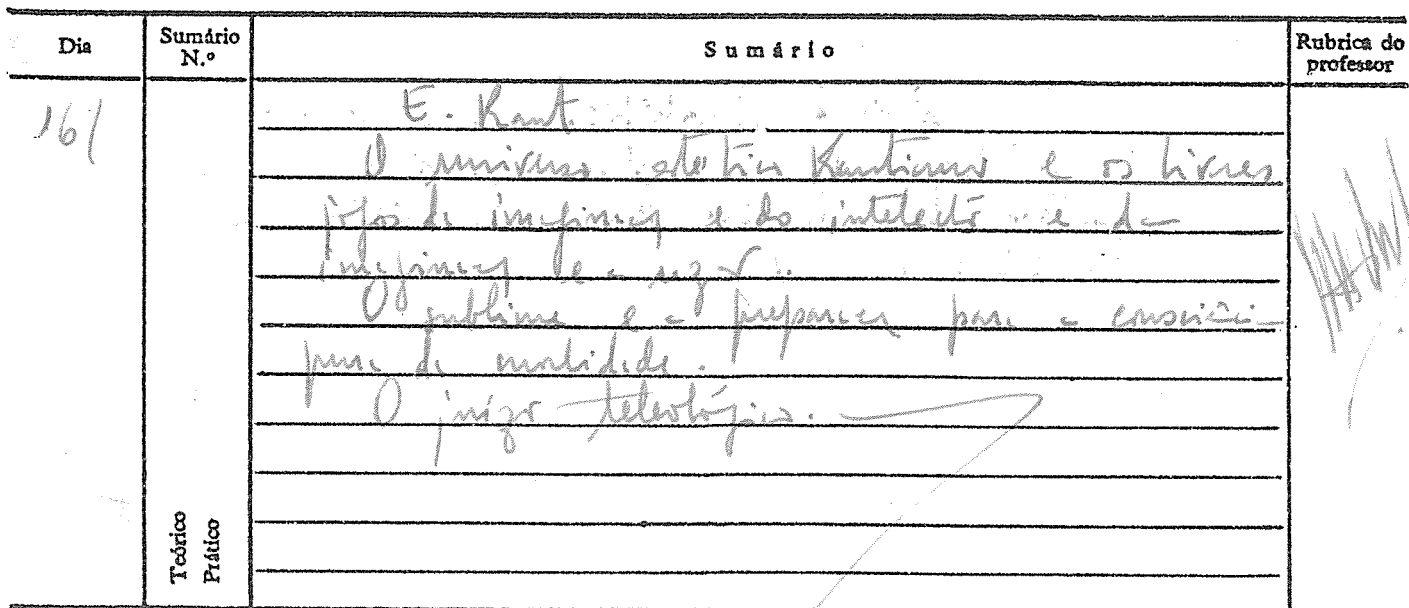 Dia
Sumário N.º
Sumário
Rubrica do professor
16/
E. Kant.
O universo estético Kantiano e os livres
jogos da imaginação e do intelecto e da
imaginação e a razão.
O sublime e a preparação para a consciência
pura da moralidade.
O juízo teleológico.
Teórico
Prático